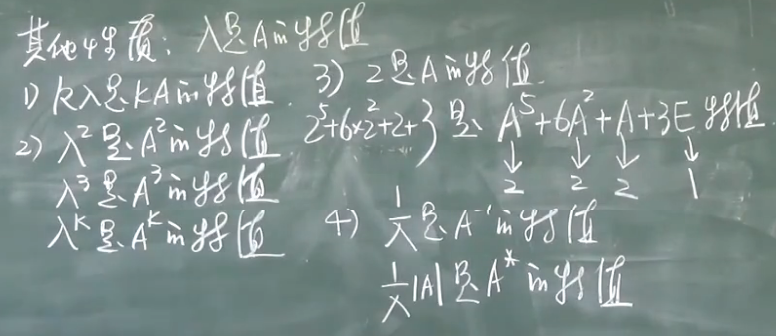 其他性质：λ是A的特值
1) kλ是kA的特值
2) λ²是A²的特值
λ³是A³的特值
λᵏ是Aᵏ的特值
3) 2是A的特值
2⁵+6×2²+2+3 是 A⁵+6A²+A+3E 特值
↓ ↓ ↓ ↓
2 2 2 1
4) 1/λ 是A⁻¹的特值
1/λ|A|是A*的特值